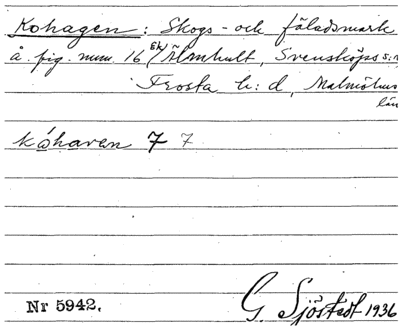 Kohagen: Skogs- och fäladsmark
å fig. num. 16 Sk/ Älmhult, Svensköps s:n
Frosta h:d, Malmöhus
län
kåhaven 7 7
Nr 5942.
G. Sjöstedt 1936